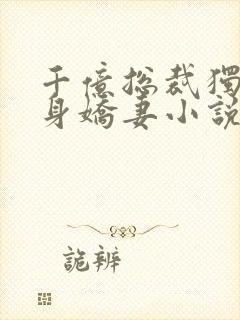 千億總裁獨
身嬌妻小說
詭辨